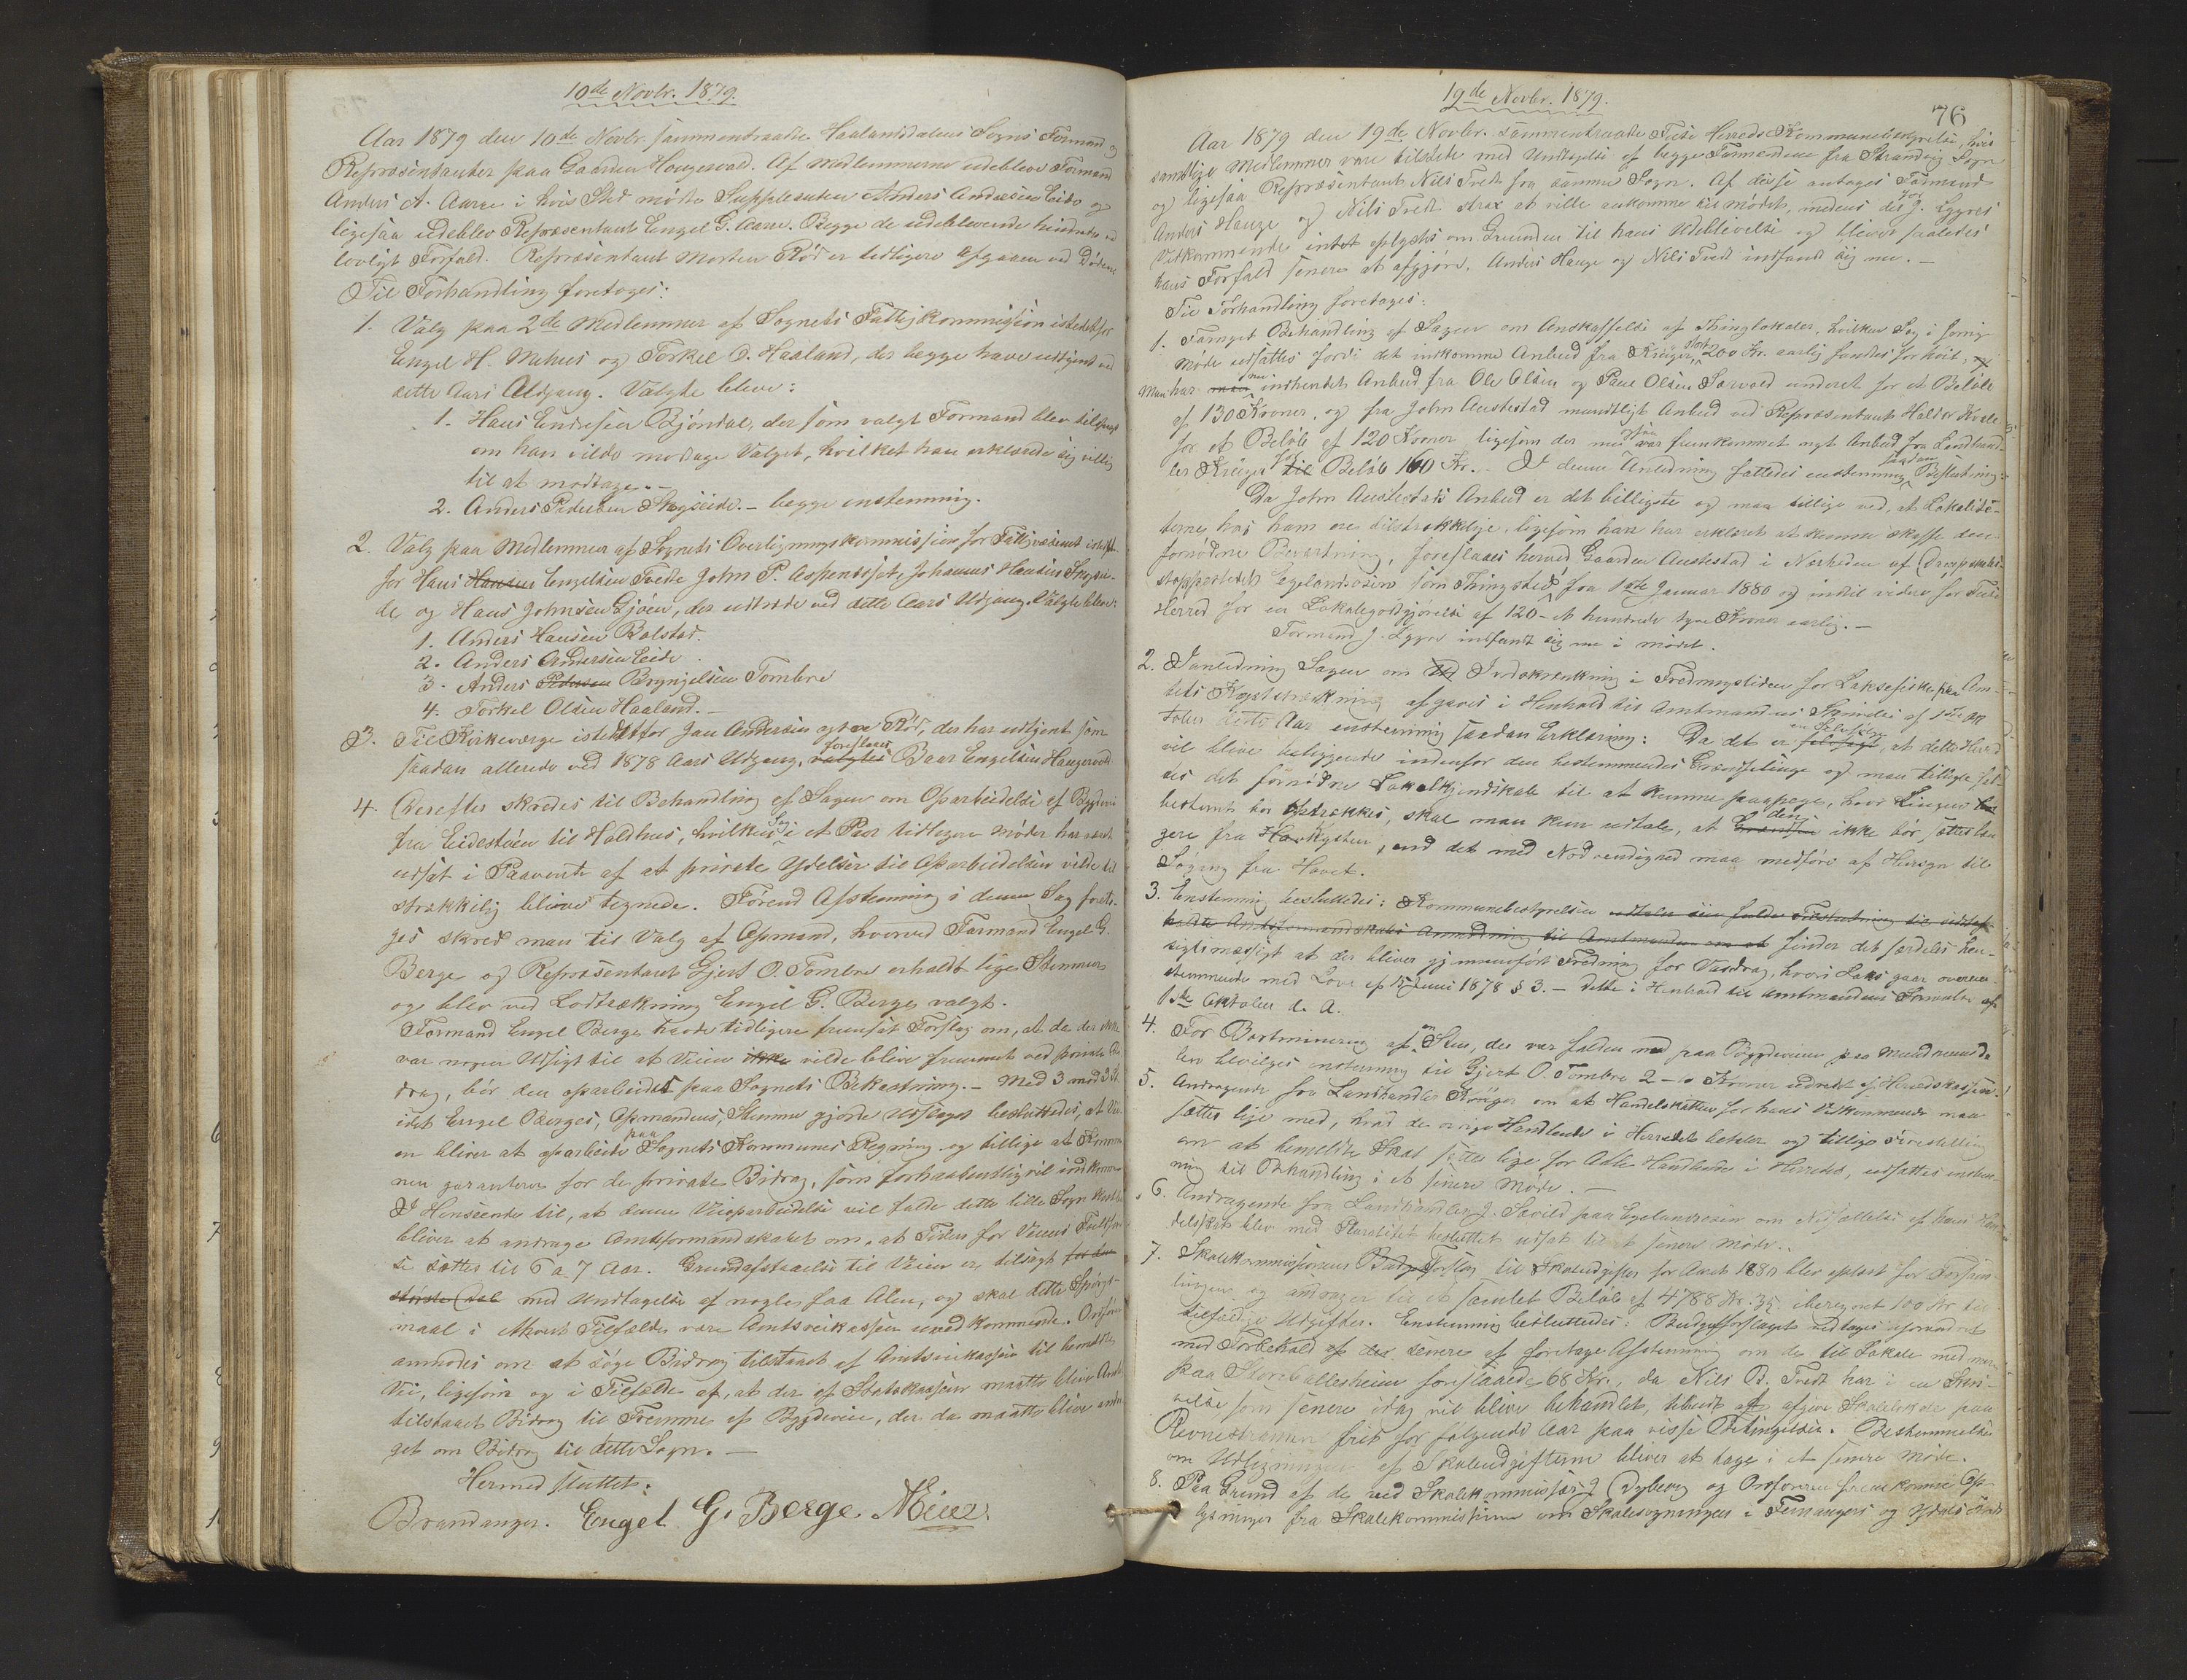 10de Novbr. 1879.
Aar 1879 den 10de Novbr. sammentraadte Haalandsdalens Sogns Formænd og
Repræsentanter paa Gaarden Haugervold. Af Medlemmerne udeblev Formand
Anders A. Aarre i hvis Sted mødte Suppleanten Anders Andersen Eide og
ligesaa udeblev Repræsentant Engel G. Aarre. Begge de udeblevende hindret ved
lovligt Forfald. Repræsentant Morten Rød er tidligere afgaaen ved Døden.
Til Forhandling foretoges:
1. Valg paa 2de Medlemmer af Sognets Fattigkommission istedetfor
Engel H. Mæhus og Torkel O. Haaland, der begge have udtjent ved
dette Aars Udgang. Valgte bleve:
1. Hans Endresen Bjøndal, der som valgt Formand blev tilspurgt
om han vilde modtage Valget, hvilket han erklærede sig villig
til at modtage.-
2. Anders Pedersen Skogseide. - begge enstemmig.
2. Valg paa Medlemmer af Sognets Overligningskommission for Fattigvæsenet istedet-
for Hans Hansen Engelsen Tvedte John P. Aspendsjet, Johannes Hansen Skogsei-
de og Hans Johnsen Gjøen, der udtræde ved dette Aars Udgang. Valgte bleve:
1. Anders Hansen Bolstad.
2. Anders Andersen Eide
3. Anders Pedersen Brynjelsen Tombre
4. Torkel Olsen Haaland.-
3. Til Kirkeværge istedetfor Jan Andersen ytre Rød, der har udtjent som
saadan allerede ved 1878 Aars Udgang, valgtes foreslaaes Baar Engelsen Haugervold
4. Derefter skredes til Behandling af Sagen om Oparbeidelse af Bygdevei
fra Eidestøen til Holdhus, hvilken Sag i et Par tidligere Møder har været
udsat i Paavente af at private Ydelser til Oparbeidelsen vilde til-
strækkelig blive tegnede. Førend Afstemning i denne Sag foreto-
ges skred man til Valg af Opmand, hvorved Formand Engel G.
Berge og Repræsentant Gjert O. Tombre erholdt lige Stemmer
og blev ved Lodtrækning Engel G. Berge valgt.
Formand Engel Berge havde tidligere fremsat Forslag om, at da der ikke
var nogen Udsigt til at Veien ikke vilde blive fremmet ved private Bi-
drag, bør den oparbeidet paa Sognets Bekostning.- Med 3 mod 3 St.
idet Engel Berges, Opmandens, Stemme gjorde Udslaget besluttedes, at Vei-
en bliver at oparbeide paa Sognets Kommunes Regning og tillige at Kommu-
nen garanterer for de private Bidrag, som forhaabentlig vil indkomme
I Henseende til, at denne Veioparbeidelse vil falde dette lille Sogn kostbar
bliver at andrage Amtsformandskabet om, at Tiden for Veiens Fuldførel-
se sættes til 6 a 7 Aar. Grundafstaaelse til Veien er tilsagt for den
største Del med Undtagelse af nogle faa Alen, og skal dette Spørgs-
maal i ethvert Tilfælde være Amtsveikassen uvedkommende. Ordføreren
anmodes om at søge Bidrag tilstaaet af Amtsveikassen til bemeldte
Vei, ligesom og i Tilfælde af, at der af Statskassen maatte blive Amtet
tilstaaet Bidrag til Fremme af Bygdeveie, der da maatte blive andra-
get om Bidrag til dette Sogn.-
Hermed sluttet:
Brandanger. Engel G. Berge. NEide.
19de Novbr. 1879.
76
Aar 1879 den 19de Novbr. sammentraadte Fuse Herreds Kommunebestyrelse, hvis
samtlige Medlemmer vare tilstede med Undtagelse af begge Formændene fra Strandvig Sogn
og ligesaa Repræsentant Nils Tvedt fra samme Sogn. Af disse antages Formand
Anders Hauge og Nils Tvedt strax at ville ankomme til mødet, medens der for J. Lygres
Vedkommende intet oplystes om Grunden til hans Udeblivelse og bliver saaledes
hans Forfald senere at afgjøre. Anders Hauge og Nils Tvedt indfandt sig nu.-
Til Forhandling foretoges:
1. Fornyet Behandling af Sagen om Anskaffelse af Thinglokaler, hvilken Sag i forrige
Møde udsattes fordi det indkomne Anbud fra Krüger, 200 Kr. aarlig fandtes for høit, og
Man har man nu indhendet Anbud fra Ole Olsen og Paul Olsen Sævold underet for et Beløb
af 130 Kroner, og fra John Austestad mundtligt Anbud ved Repræsentant Haldor Kvale
for et Beløb af 120 Kroner ligesom der nu ogsaa var fremkommet nyt Anbud fra Landhand-
ler Krüger til Beløb 160 Kr.- I denne Anledning fattedes enstemmig saadan Beslutning:
Da John Austestads Anbud er det billigste og man tillige ved, at Lokalite-
terne hos ham ere tilstrækkelige, ligesom han har erklæret at kunne skaffe den
fornødne Bevertning, foreslaaes herved Gaarden Austestad i Nærheden af Dampskibs-
stoppestedet Egelandsosen som Thingsted fra 1ste Januar 1880 og indtil videre for Fuse
Herred for en Lokalegodtgjørelse af 120 - et hundrede tyve Kroner aarlig.-
Formand J. Lygre indfandt sig nu i mødet.
2. I anledning Sagen om ved Indskrænkning i Fredningstiden for Laksefiske paa Am-
tets Kyststrækning afgaves i Henhold til Amtmandens Skrivelse af 1ste Ok-
tober dette Aar enstemmig saadan Erklæring: Da det er følgelig en Selvfølge, at dette Herred
vil blive beliggende indenfor den bestemmendes Grændselinge og man tillige føl-
der det fornødne Lokalkjendskab til at kunne paapege, hvor Linjen bør
bestemt bør optrækkes, skal man kun udtale, at Grændsen den ikke bør sættes læn-
gere fra Havkysten, end det med Nødvendighed maa medføre af Hensyn til
Søgang fra Havet.
3. Enstemmig besluttedes: Kommunebestyrelsen udtaler sin fulde Tilslutning til sidstaf-
holdte Amtsformandskabs Anmodning til Amtmanden om at finder det særdeles hen-
sigtsmæssigt at der bliver gjennemført Fredning for Vasdrag, hvori Laks gaar overens-
stemmende med Lov af Juni 1878 § 3.- Dette i Henhold til Amtmandens Skrivelse af
1ste Oktober d. A.
4. For Bortminering af en Sten, der var falden ned paa Bygdeveien paa
lev bevilges enstemmig til Gjert O. Tombre 2 - to Kroner udredet af Herredskassen.
5. Andragende fra Landhandler Krüger om at Handelskatten for hans Vedkommende maa
sættes lige med, hvad de øvrige Handlende i Herredet betaler og tillige Forestilling
om at bemeldte Skat sættes lige for Alle Handlende i Herredet, udsattes enstem-
mig til Behandling i et senere Møde.-
6. Andragende fra Landhandler J. Sævild paa Egelandsosen om Nedsættelse af hans Han-
delsskat blev med Pluralitet besluttet udsat til et senere Møde.
7. Skolekommissionens Budg Forslag til Skoleudgifter for Aaret 1880 blev oplæst for Forsam-
lingen og andrager til et samlet Beløb af 4788 Kr. 35. iberegnet 100 Kr til
tilfældige Udgifter. Enstemmig besluttedes: Budgetforslaget vedtages uforandret
med Forbehold af der senere af foretage Afstemning om de til Lokale med mere
paa Storeballesheim foreslaaede 68 Kr., da Nils B. Tvedt har i en Skri-
velse som senere idag vil blive behandlet, tilbudt at afgive Skolelokale paa
Revnestrand frit for følgende Aar paa visse Betingelser. Bestemmelse
om Udligningen af Skoleudgifterne bliver at tage i et senere Møde.
8. Paa Grund af de ved Skolekommissær J Dyberg og Ordføreren fremkomne Op-
lysninger fra Skolekommissionen om Skolesøgningen i Femangers og Ydals